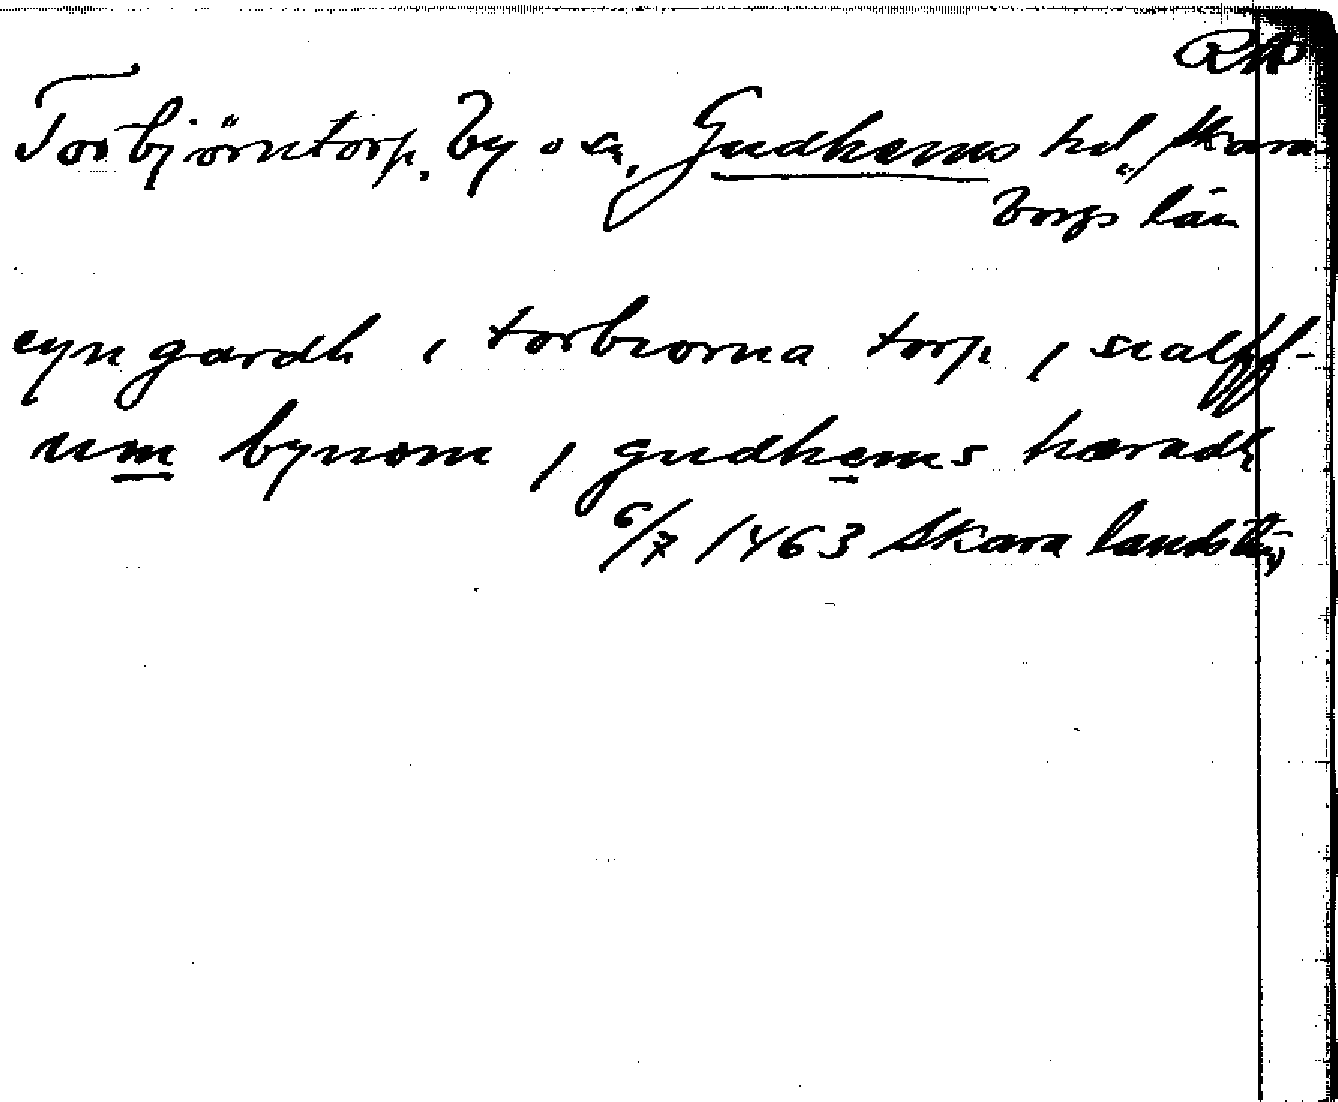 RAp
Torbjörntorp, by o sn, Gudhems hd, Skara-
borgs län
eyn gardh i torbiorna torp / sialff-
um bynom / gudhems hæradh
6/7 1463 Skara landsting